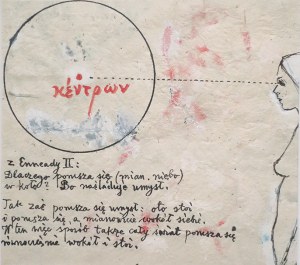 κέντρων
z Enneady II:
Dlaczego porusza się (mian. niebo)
w koło? Bo naśladuje umysł.
Jak zaś porusza się umysł: oto stoi
i porusza się, a mianowicie wokół siebie.
W ten więc sposób także cały świat porusza się
równocześnie wokół i stoi.